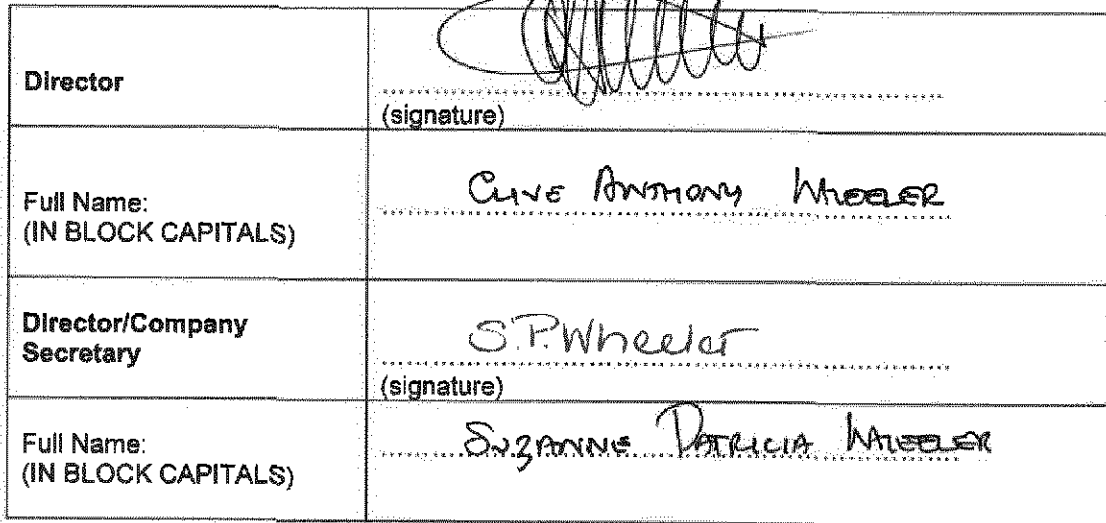 Director
(signature)
Full Name:
(IN BLOCK CAPITALS)
CLIVE ANTHONY WHEELER
Director/Company
Secretary
S.P. Wheeler
(signature)
Full Name:
(IN BLOCK CAPITALS)
SUZANNE PATRICIA WHEELER